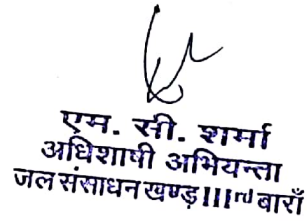 एम. सी. शर्मा
अधिशाषी अभियन्ता
जल संसाधन खण्ड़ IIIrd बाराँ